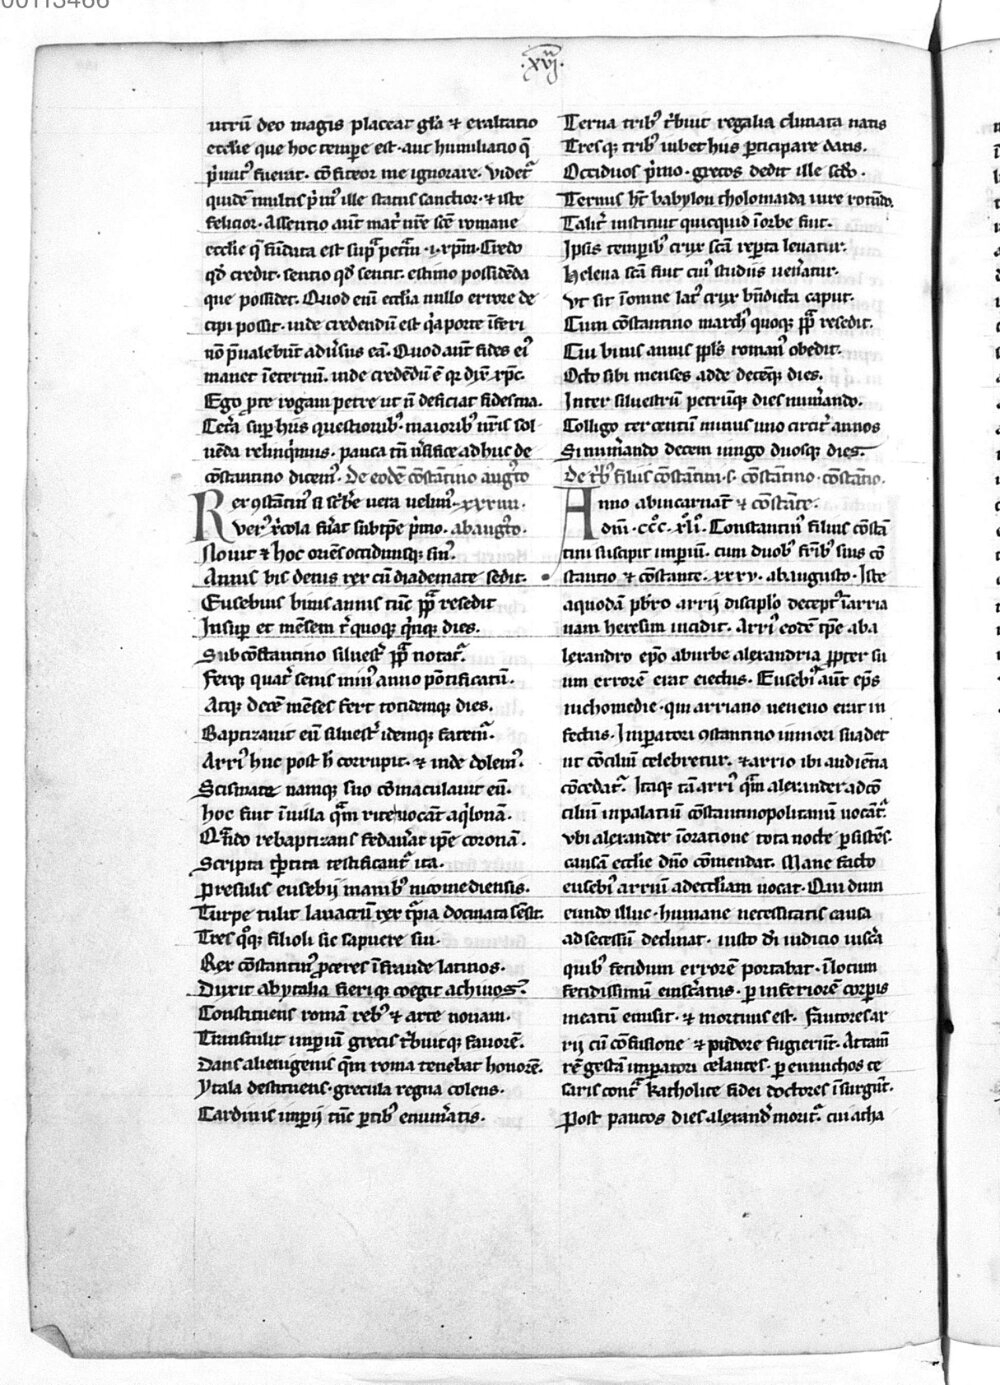 00113466
.xvj.
utrū deo magis placeat gl̄a ⁊ exaltatio
ecclīe que hoc tempore est · aut humiliatio q̄
p̄mitꝰ fuerat · cōfiteor me ignorare · videtᷓ
quidē multis p̄mꝰ ille status sanctior · ⁊ iste
felicior · Assentio aūt matᷓ nr̄e scē romane
ecclīe q̄ fūdata est supᷓ petrā · i · xp̄m · Credo
qđ credit · sentio qđ sentit · estimo possidēda
que possidet · Quod enī ecclīa nullo errore de
cipi possit · inde credendū est q̇a porte īferi
nō p̄ualebūt aduᷓsus eā · Quod aūt fides eiꝰ
manet īeternū · inde credēdū ē qꝛ dix̄ xp̄c ·
Ego ꝓ te rogaui petre ut n̄ deficiat fides tua ·
Cetᷓa suꝑ hiis questionibꝰ · maioribꝰ nr̄is sol
uēda relinq̇mus · pauca tn̄ nr̄ifice adhuc de
cōstantino dicemꝰ · De eodē cōstantino augᷓto
Rex ꝯstātinꝰ si sc̄bere uera uelimꝰ · xxxiiii ·
ver̄ x̄cola fuᷓat sub tꝑe p̄mo · ab augᷓto ·
Nouit ⁊ hoc oriēs occiduusqꝫ sinꝰ ·
Annis bis denis rex cū diademate sedit ·
Eusebius binis annis tūc pp̄ᷓ resedit
Insuꝑ et mēsem tᷓ quoqꝫ q̇nqꝫ dies ·
Sub cōstantino siluestᷓ pp̄ᷓ notatᷓ ·
Ferqꝫ quatᷓ senis minꝰ anno pōtificatū ·
Atqꝫ decē mēses fert totidemqꝫ dies ·
Baptizauit eū siluestᷓ idemqꝫ fatemᷓ ·
Arriꝰ hūc post h̄ corrupit · ⁊ inde dolemꝰ ·
Scismate namqꝫ suo cōmaculauit eū ·
hoc fiut ī uilla qᷓm rite uocāt aq̇lonā ·
Qn̄do rebaptizans fedauᷓat ip̄e coronā ·
Scripta tp̄tita testificantᷓ ita ·
presulis eusebij manibꝰ nicomediensis ·
Turpe tulit lauacrū rex tᷓpia docmata sēsit ·
Tres qꝫ filioli sic sapuere sui ·
Rex cōstantinꝰ ꝓceres ī fraude latinos ·
Duxit ab ytalia fieriqꝫ coegit achiuos ·
Constituens romā rebꝰ ⁊ arte nouam ·
Transtulit imperiū grecis tᷓbuitqꝫ fauorē ·
Dans alienigenis qᷓm roma tenebat honorē ·
Ytala destituens · grecula regna colens ·
Cardinis imperij tūc ꝑtibꝰ enumᷓatis ·
Terna tribꝰ tᷓbuit regalia clunata natis
Tresqꝫ tribꝰ iubet hiis ꝑticipare datis ·
Occiduos p̄mo · grecos dedit ille scđo ·
Ternus ht̄ babylon tholomaida iure rotūdo ·
Talitᷓ instituit quicquid ī orbe fiut ·
Ipsis temꝑibꝰ crux scā reꝑta leuatur ·
Helena scā fiut cuiꝰ studiis ueᷓnatur ·
Vt sit ī omne latꝰ crux bn̄dicta caput ·
Cum cōstantino marchꝰ quoqꝫ pp̄ᷓ resedit ·
Cui binis annis pp̄ls romanꝰ obedit ·
Octo sibi menses adde decemqꝫ dies ·
Inter siluestrū petrūqꝫ dies numᷓando ·
Colligo ter centū minus uno circitᷓ annos
Si numᷓando decem iungo duosqꝫ dies ·
de tᷓbꝰ filiis cōstantini · s · cōstantino · cōstantio ·
Anno ab incarnatᷓ ⁊ cōstāte ·
dnī · cc̄c · xlī · Constantinꝰ filius cōstā
tini suscipit imperiū · cum duobꝰ fr̄ibꝰ suis cō
stantio ⁊ cōstante · xxxv · ab augusto · Iste
a quodā pb̄ro arrij discipl̄o deceptꝰ ī arria
nam heresim incidit · Arriꝰ eodē tꝑe ab a
lexandro ep̄o ab urbe alexandria ꝓpter su
um errorē erat eiectus · Eusebiꝰ aūt ep̄s
nichomedie · qui arriano ueneno erat in
fectus · Imperatori ꝯstantino iuniori suadet
ut cōciliū celebretur · ⁊ arrio ibi audiētia
cōcedatᷓ · Itaqꝫ tā arriꝰ qᷓm alexander ad cō
ciliū in palatiū cōstantinopolitanū uocātᷓ ·
vbi alexander ī oratione tota nocte ꝑsistēs ·
causā ecclīe dn̄o cōmendat · Mane facto
eusebiꝰ arriū ad ecclīam uocat · Qui dum
eundo illuc · humane necessitatis causa
ad secessū declinat · iusto dī iudicio uiscᷓa
quibꝰ fetidum errorē portabat · ī locum
fetidissimū euiscᷓatus · ꝑ inferiorē corꝑis
meatū emisit · ⁊ mortuus est · Fautores ar
rij cū cōfusione ⁊ pudore fugierūt · Attam̄
rē gestā imperatori celantes · ꝑ ennuchos ce
saris contᷓ katholice fidei doctores īsurgūt ·
Post paucos dies alexandᷓ moritᷓ cui atha